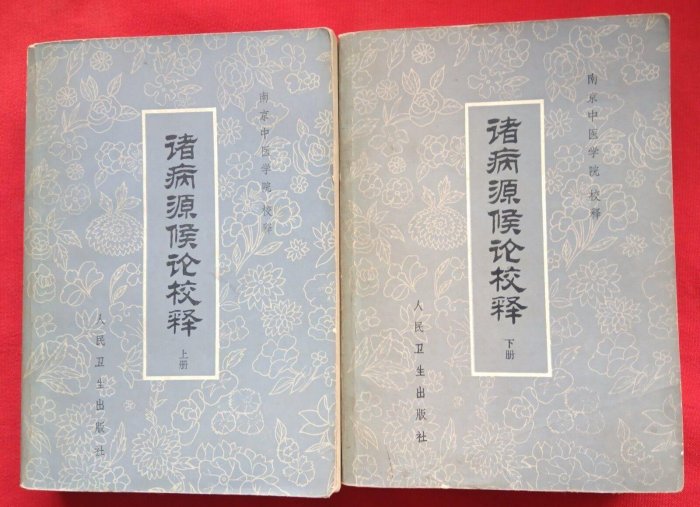 南京中医学院 校释
诸病源候论校释
上册
人民卫生出版社
南京中医学院 校释
诸病源候论校释
下册
人民卫生出版社